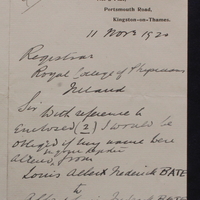 Portsmouth Road,
Kingston-on-Thames.
11 Nov 1920
Registrar
Royal College of Physicians
Ireland
Sir With reference to
Enclosed (2) I would be
obliged if my name were
altered, from
Louis Albert Frederick BATE
to